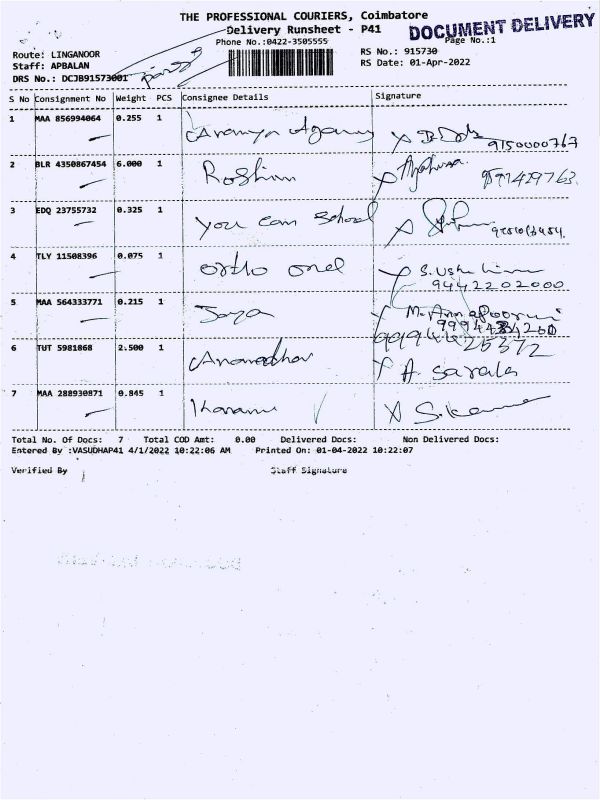 THE PROFESSIONAL COURIERS, Coimbatore
Delivery Runsheet - P41
DOCUMENT DELIVERY
Phone No.:0422-3505555
Page No.:1
Route: LINGANOOR
RS No.: 915730
Staff: APBALAN
RS Date: 01-Apr-2022
DRS No.: DCJB91573001
S No Consignment No Weight PCS Consignee Details Signature
1 MAA 856994064 0.255 1
9150000767
2 BLR 4350867454 6.000 1 Roshini
3 EDQ 23755732 0.325 1 you can School
4 TLY 11508396 0.075 1 ortho one X S. Usha
9442202000
5 MAA 564333771 0.215 1 Jaya X M. Annapoorni
9994425372
6 TUT 5981868 2.500 1 X A. Sarala
7 MAA 288930871 0.845 1 X
Total No. Of Docs: 7 Total COD Amt: 0.00 Delivered Docs: Non Delivered Docs:
Entered By :VASUDHAP41 4/1/2022 10:22:06 AM Printed On: 01-04-2022 10:22:07
Verified By Staff Signature